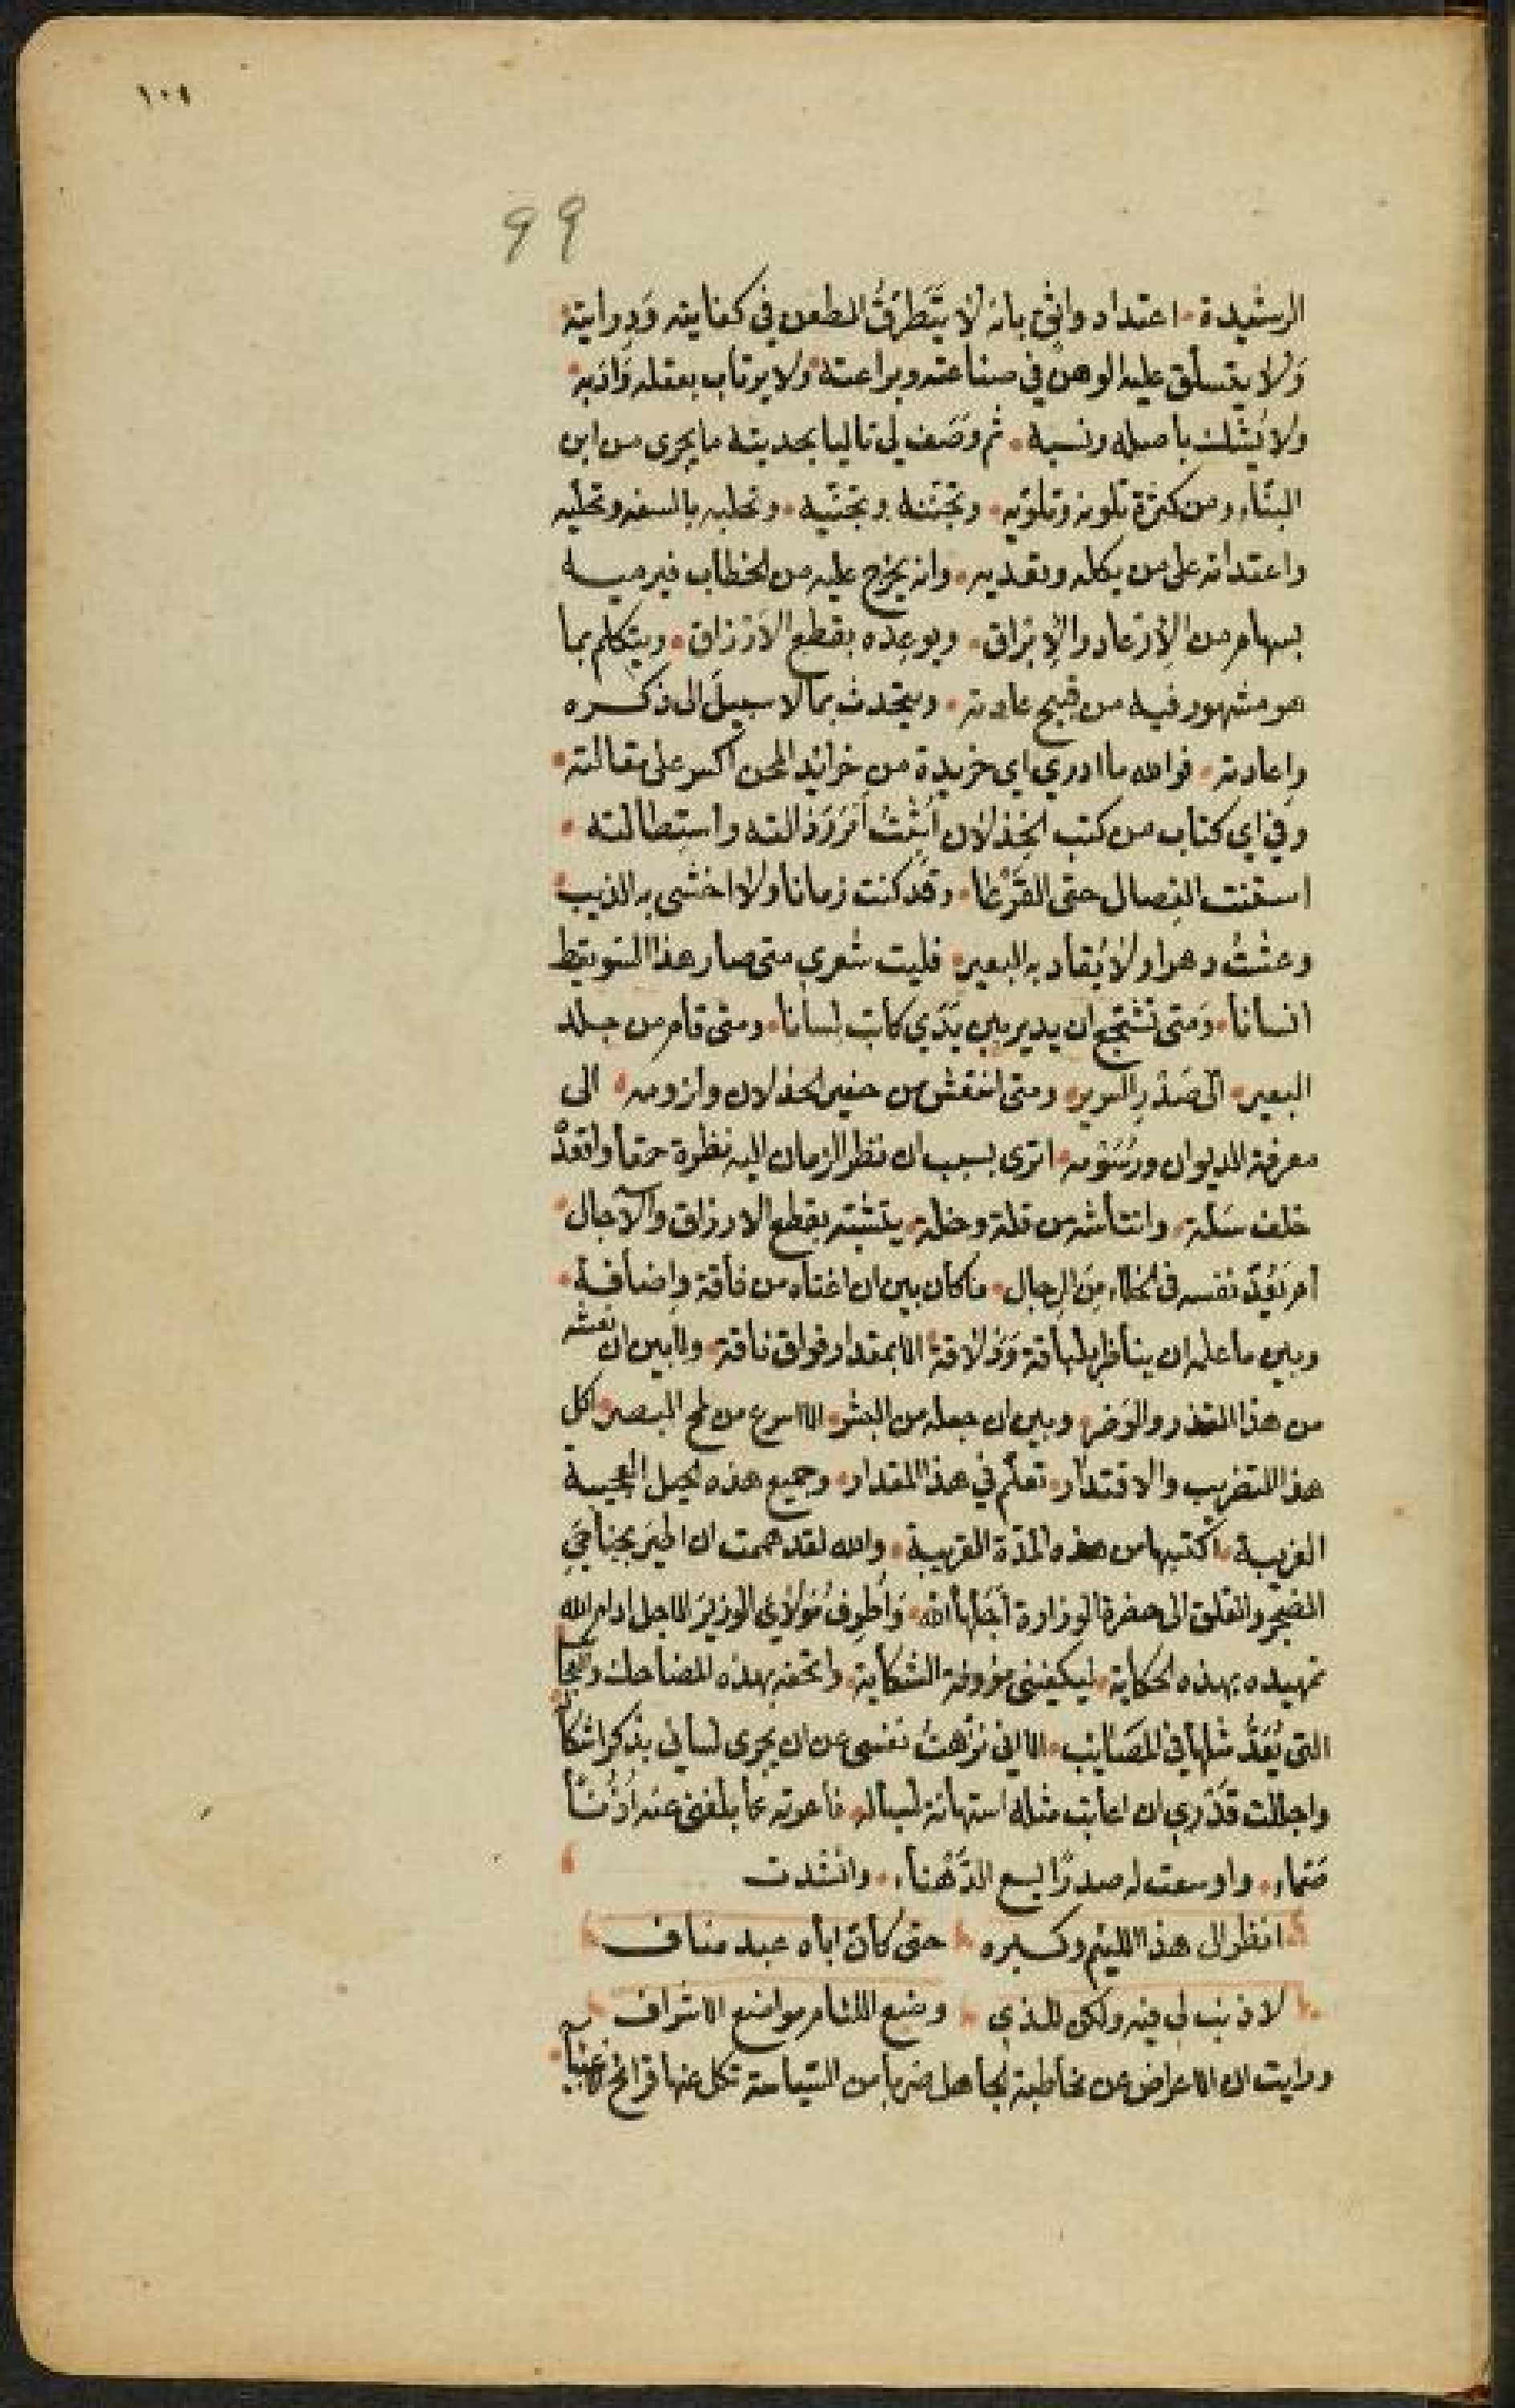 ١٠١
99
الرشيدة اعتداد واثق بانه لا يتطرق المطعن في كفايته ودرايته
ولا يتسلق عليه الوهن في صناعته وبراعته ولا يرتاب بعقله وادبه
ولا يشك باصله ونسبه ثم وصف لي تاليا بحديثه ما يجرى من ابن
البناء ومن كثرة تلونه وتلويه وتجننه وتجنيه وتحليه
واعتدائه على من يكله وتعديه وانه يخرج عليه من الخطاب فيرميه
بسهام من الارعاد والابراق ويوعده بقطع الارزاق ويتكلم بما
هو مشهور فيه من قبيح عادته ويتحدث بما لا سبيل الى ذكره
واعادته فوالله ما ادري اي خريدة من خرائد المحن اكسر على مقالته
وفي اي كتاب من كتب الخذلان اثبت رذالته واستطالته
استنت الفصال حتى القرعا وقد كنت زمانا ولا اخشى به الذيب
وعشت دهرا ولا يقاد به البعير فليت شعري متى صار هذا
انسانا ومتى ان يدير بين يدي كاتب لسانا ومتى قام من جلد
البعير الى صدر السرير ومتى انتقش من الخذلان الى
معرفة الديوان ورسومه اترى بسبب ان نظر الزمان اليه نظرة حمقا
خلف سلة وانتاشه من قلة يتشبه بقطع الارزاق والآجال
ام نفسه في من الرجال ما كان بين ان اغناه من فاقة واضافة
وبين ما علمه ان يناظر بلباقة وذلاقة الا بمقدار فواق ناقة ولا بين ان نعشه
من هذا القذر والوضر وبين ان جعله من البشر الا اسرع من لمح البصر اكل
هذا التضريب والاقتدار تعلم في هذا المقدار وجميع هذه الحيل العجيبة
الغريبة اكتسبها من هذه المدة القريبة والله لقد هممت ان اطير بجناحي
الضجر والقلق الى حضرة الوزارة اجلها الله واطرف مولاي الوزير الاجل ادام الله
تمهيده بهذه الحكاية ليكفيني مؤونة الشكاية واتحفه بهذه المضاحك
التي يعد مثلها في المصائب الا اني نزهت نفسي عن ان يجرى لساني بذكر
واجللت قدري ان اعاتب مثله استهانة لسباله فاعرته عما بلغني عنه اذنا
صماء واوسعت له صدرا يسع الدهناء وانشدت
انظر الى هذا اللئيم وكبره حتى كأن اباه عبد مناف
لا ذنب لي فيه ولكن للذي وضع اللئام مواضع الاشراف
ورايت ان الاعراض عن مخاطبة الجاهل ضربا من السياسة تكل عنها قرائح